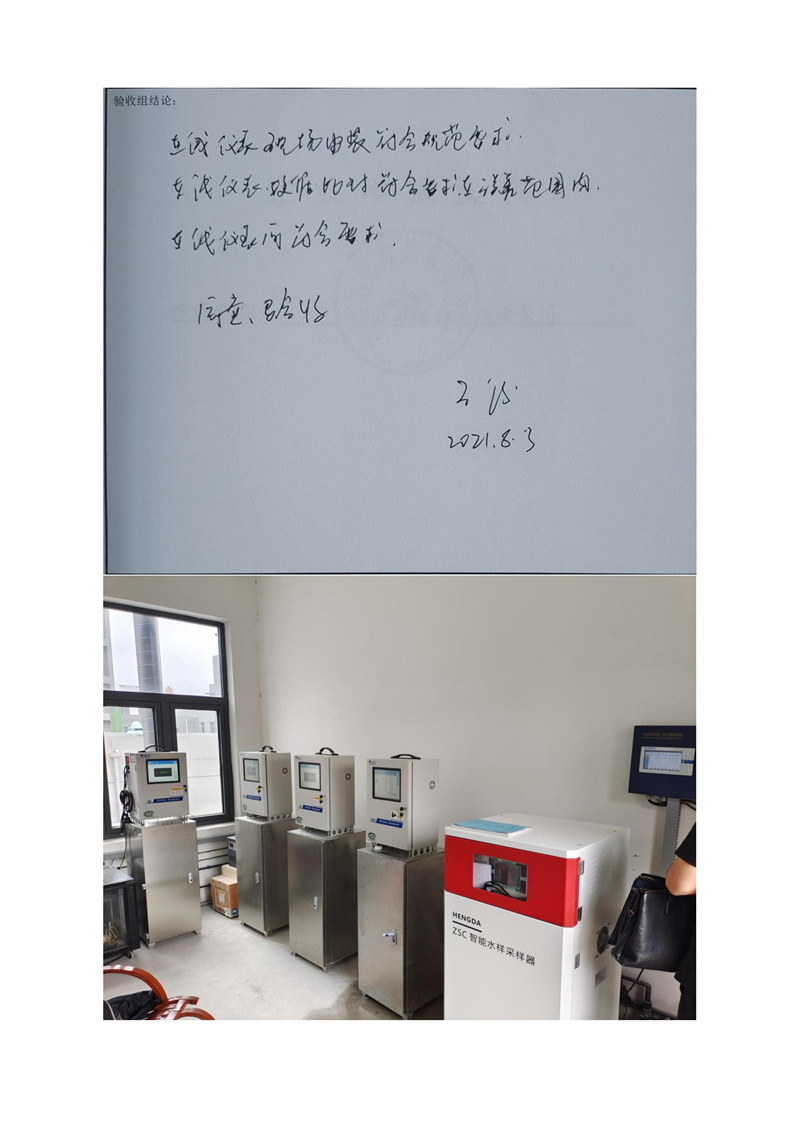 验收组结论：
在线仪表现场安装符合规范要求.
在线仪表数据比对符合要求在误差范围内.
在线仪表间符合要求.
同意、验收
2021.8.3
HENGDA
ZSC 智能水样采样器